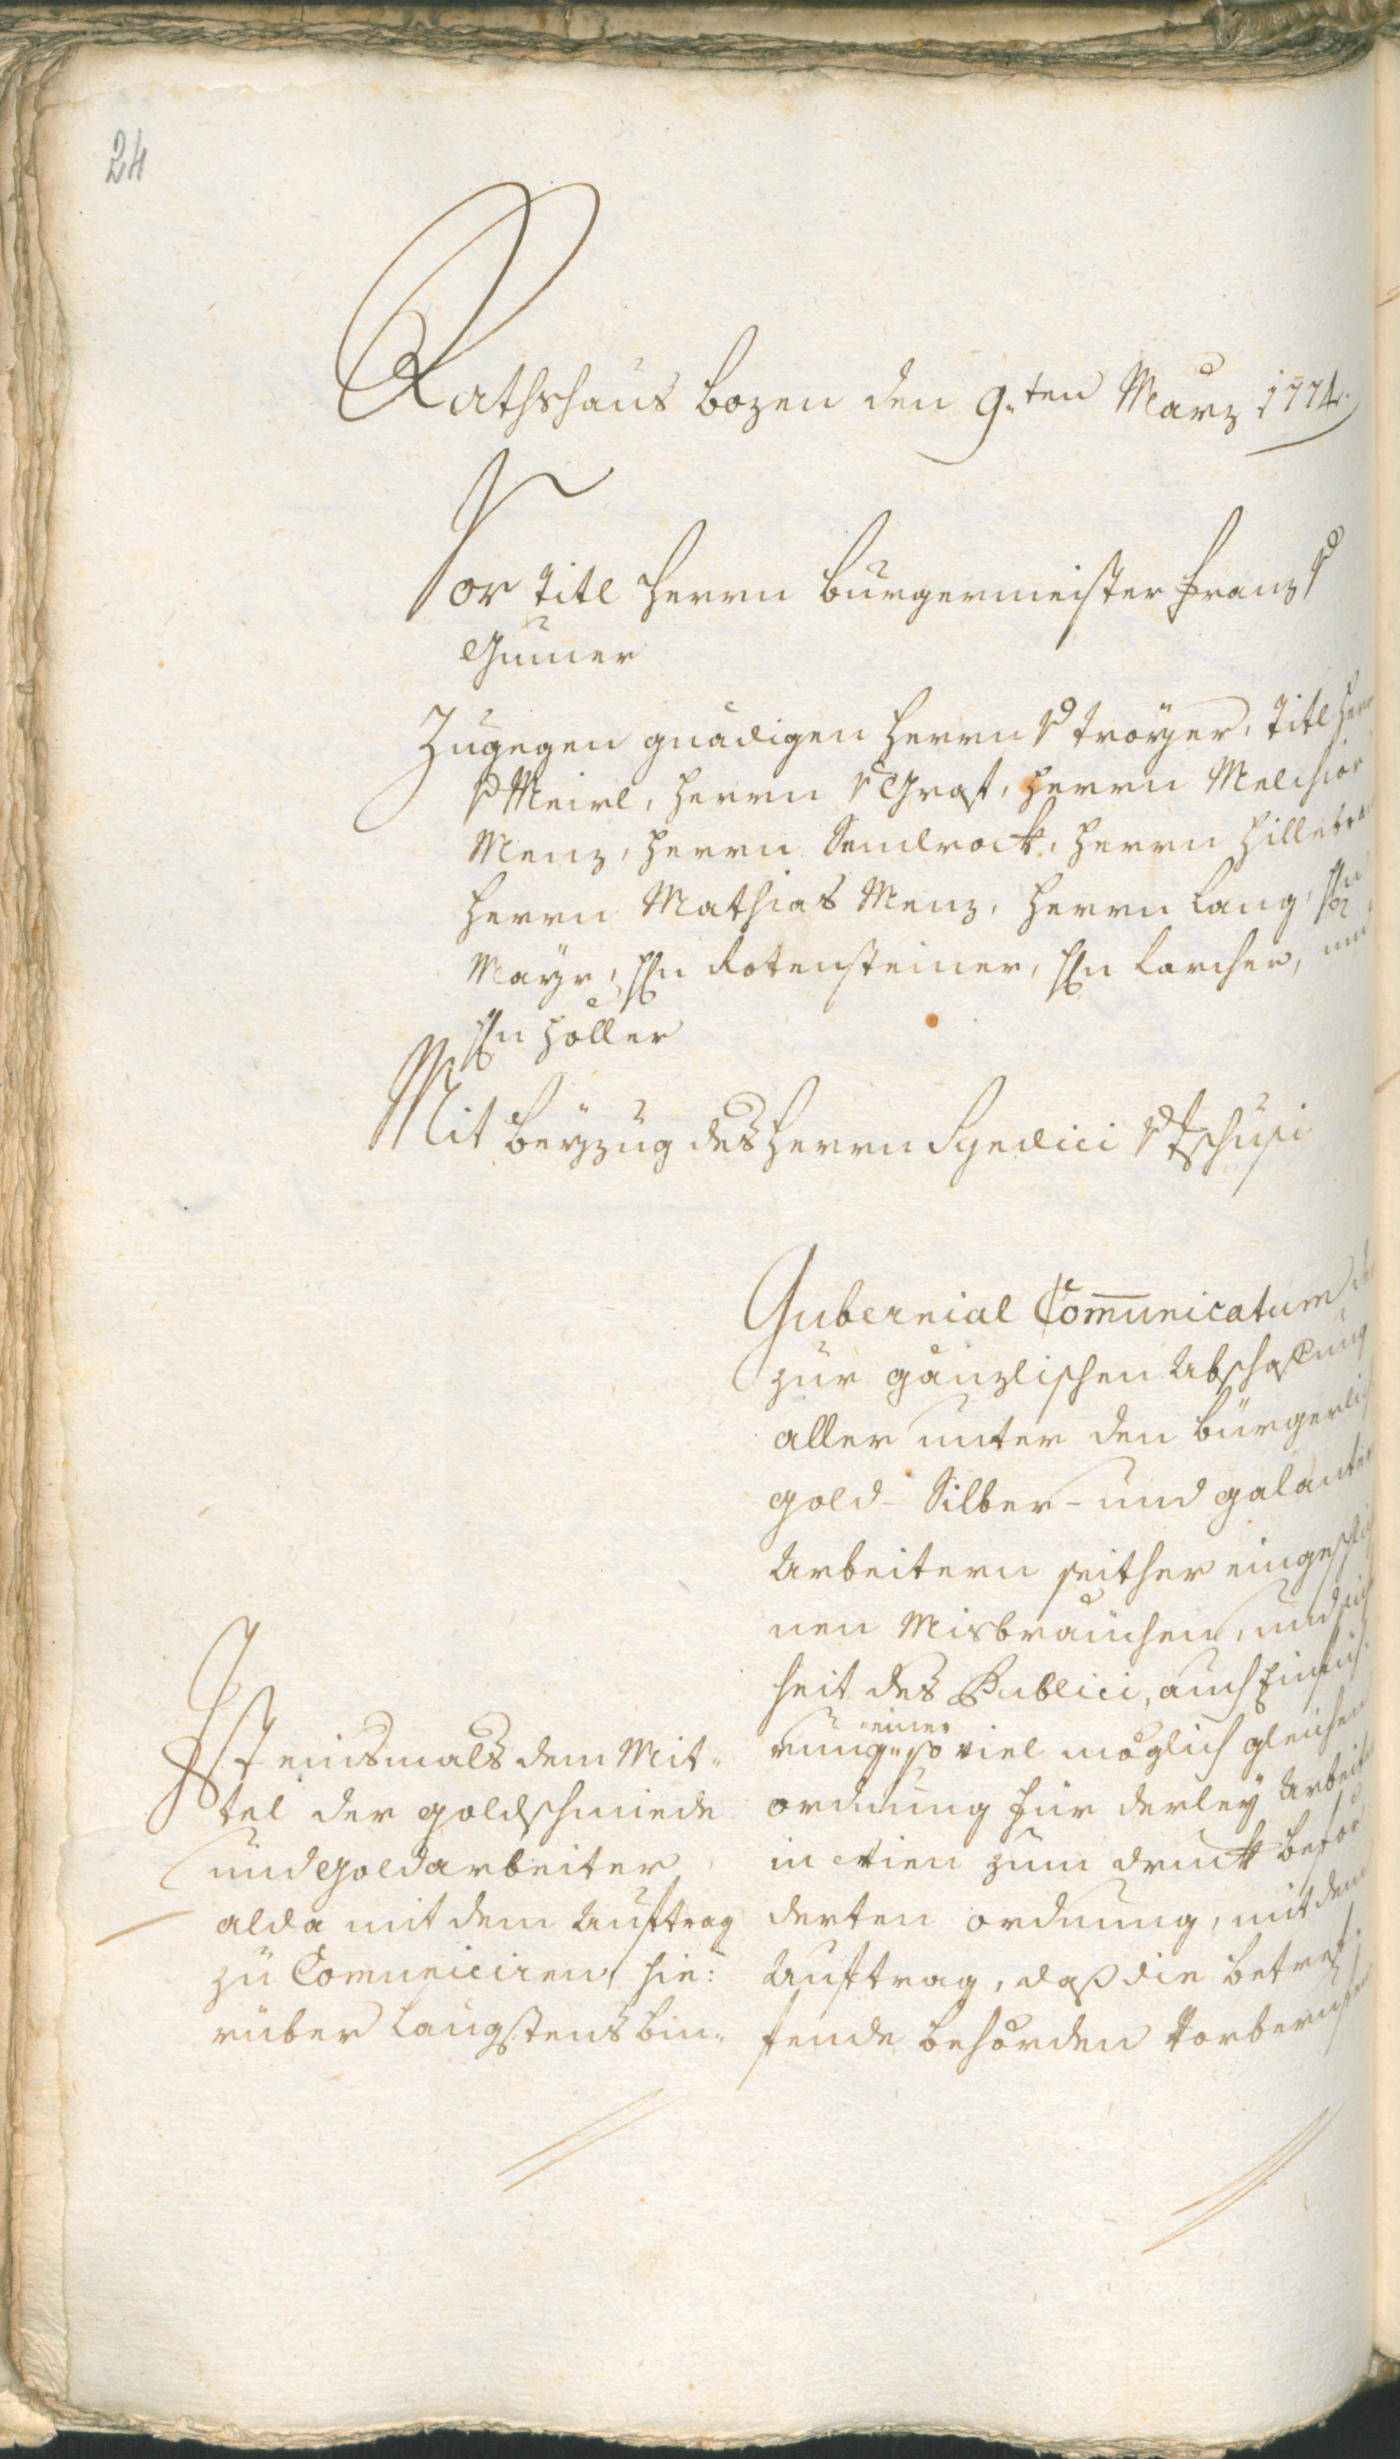 24
Rathshaus Bozen den 9.ten Marz 1774.
Vor Titl Herrn Burgermeister Franz v
Gumer
Zugegen gnädigen Herrn v Troyer, Titl Herr
v Meirl, Herrn v Graf, Herrn Melchior
Menz, Herrn Sendrock, Herrn Hillebra
Herrn Mathias Menz, Herrn Lang, Hn
Mayr, Hn Rotensteiner, Hn Larcher, und
Hn Holler
Mit Beyzug des Herrn Syndici v Tschusi
Gubernial Communicatum
zur gänzlichen Abschaffung
aller unter den bürgerlich
Gold- Silber- und galanter
Arbeitern seither eingeschli
nen Misbräuchen, und sich
heit des Publici, auch Einfüh
rung einer so viel möglich gleichen
ordnung für derley Arbeit
in Wien zum druck befor
derten ordnung, mit dem
Auftrag, daß die betref
fende behörden
Ist eins mals dem Mit-
tel der goldschmiede
und goldarbeiter
alda mit dem Auftrag
zu Comuniciren, hie:
rüber langstens bin-